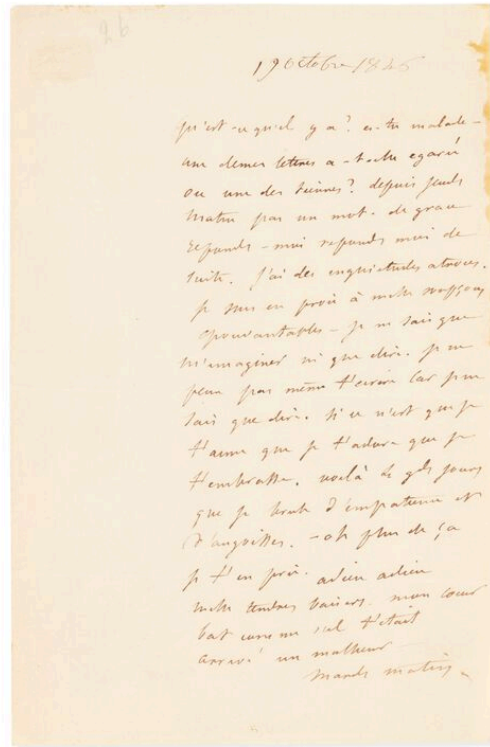 26
19 Octobre 1846
qu'est-ce qu'il y a ? es-tu malade -
une de mes lettres a-t-elle égaré
ou une des tiennes ? depuis jeudi
matin pas un mot. de grace
reponds-moi reponds moi de
suite. J'ai des inquietudes atroces.
je suis en proie à mille soupçons
epouvantables - je ne sais que
m'imaginer ni que dire. je ne
peux pas même t'ecrire car je ne
sais que dire. si ce n'est que je
t'aime que je t'adore que je
t'embrasse. voilà jours
que je brule d'impatience et
d'angoisses. - oh plus de ça
je t'en prie. adieu adieu
mille tendres baisers. mon coeur
bat comme s'il t'était
arrivé un malheur
Mardi matin.